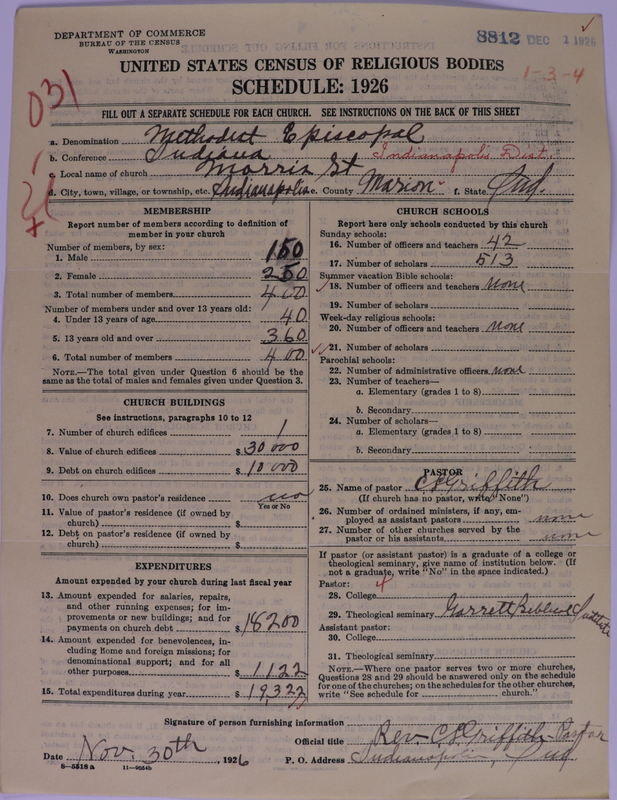 DEPARTMENT OF COMMERCE
BUREAU OF THE CENSUS
WASHINGTON
8812 DEC 1 1926
UNITED STATES CENSUS OF RELIGIOUS BODIES
1-3-4
SCHEDULE: 1926
031
FILL OUT A SEPARATE SCHEDULE FOR EACH CHURCH. SEE INSTRUCTIONS ON THE BACK OF THIS SHEET
a. Denomination Methodist Episcopal
b. Conference Indiana Indianapolis Dist.
c. Local name of church Morris St
d. City, town, village, or township, etc. Indianapolis e. County Marion f. State Ind.
MEMBERSHIP
Report number of members according to definition of
member in your church
Number of members, by sex:
1. Male 150
2. Female 250
3. Total number of members 400
Number of members under and over 13 years old:
4. Under 13 years of age 40
5. 13 years old and over 360
6. Total number of members 400
NOTE.—The total given under Question 6 should be
same as the total of males and females given under Question 3.
CHURCH BUILDINGS
See instructions, paragraphs 10 to 12
7. Number of church edifices 1
8. Value of church edifices $ 30 000
9. Debt on church edifices $ 10 000
10. Does church own pastor's residence no
Yes or No
11. Value of pastor's residence (if owned by
church) $
12. Debt on pastor's residence (if owned by
church) $
EXPENDITURES
Amount expended by your church during last fiscal year
13. Amount expended for salaries, repairs,
and other running expenses; for im-
provements or new buildings; and for
payments on church debt $ 18200
14. Amount expended for benevolences, in-
cluding Home and foreign missions; for
denominational support; and for all
other purposes $ 1122
15. Total expenditures during year $ 19322
CHURCH SCHOOLS
Report here only schools conducted by this church
Sunday schools:
16. Number of officers and teachers 42
17. Number of scholars 513
Summer vacation Bible schools:
18. Number of officers and teachers none
19. Number of scholars
Week-day religious schools:
20. Number of officers and teachers none
21. Number of scholars
Parochial schools:
22. Number of administrative officers none
23. Number of teachers—
a. Elementary (grades 1 to 8)
b. Secondary
24. Number of scholars—
a. Elementary (grades 1 to 8)
b. Secondary
PASTOR
25. Name of pastor C S Griffith
(If church has no pastor, write "None")
26. Number of ordained ministers, if any, em-
ployed as assistant pastors none
27. Number of other churches served by the
pastor or his assistants none
If pastor (or assistant pastor) is a graduate of a college or
theological seminary, give name of institution below. (If
not a graduate, write "No" in the space indicated.)
Pastor: 4
28. College
29. Theological seminary Garrett Biblical Institute
Assistant pastor:
30. College
31. Theological seminary
NOTE.—Where one pastor serves two or more churches,
Questions 28 and 29 should be answered only on the schedule
for one of the churches; on the schedules for the other churches,
write "See schedule for church."
Signature of person furnishing information
Official title Rev. C S Griffith Pastor
Date Nov. 30th, 1926 P. O. Address Indianapolis, Ind
8-5518 a 11-9054b